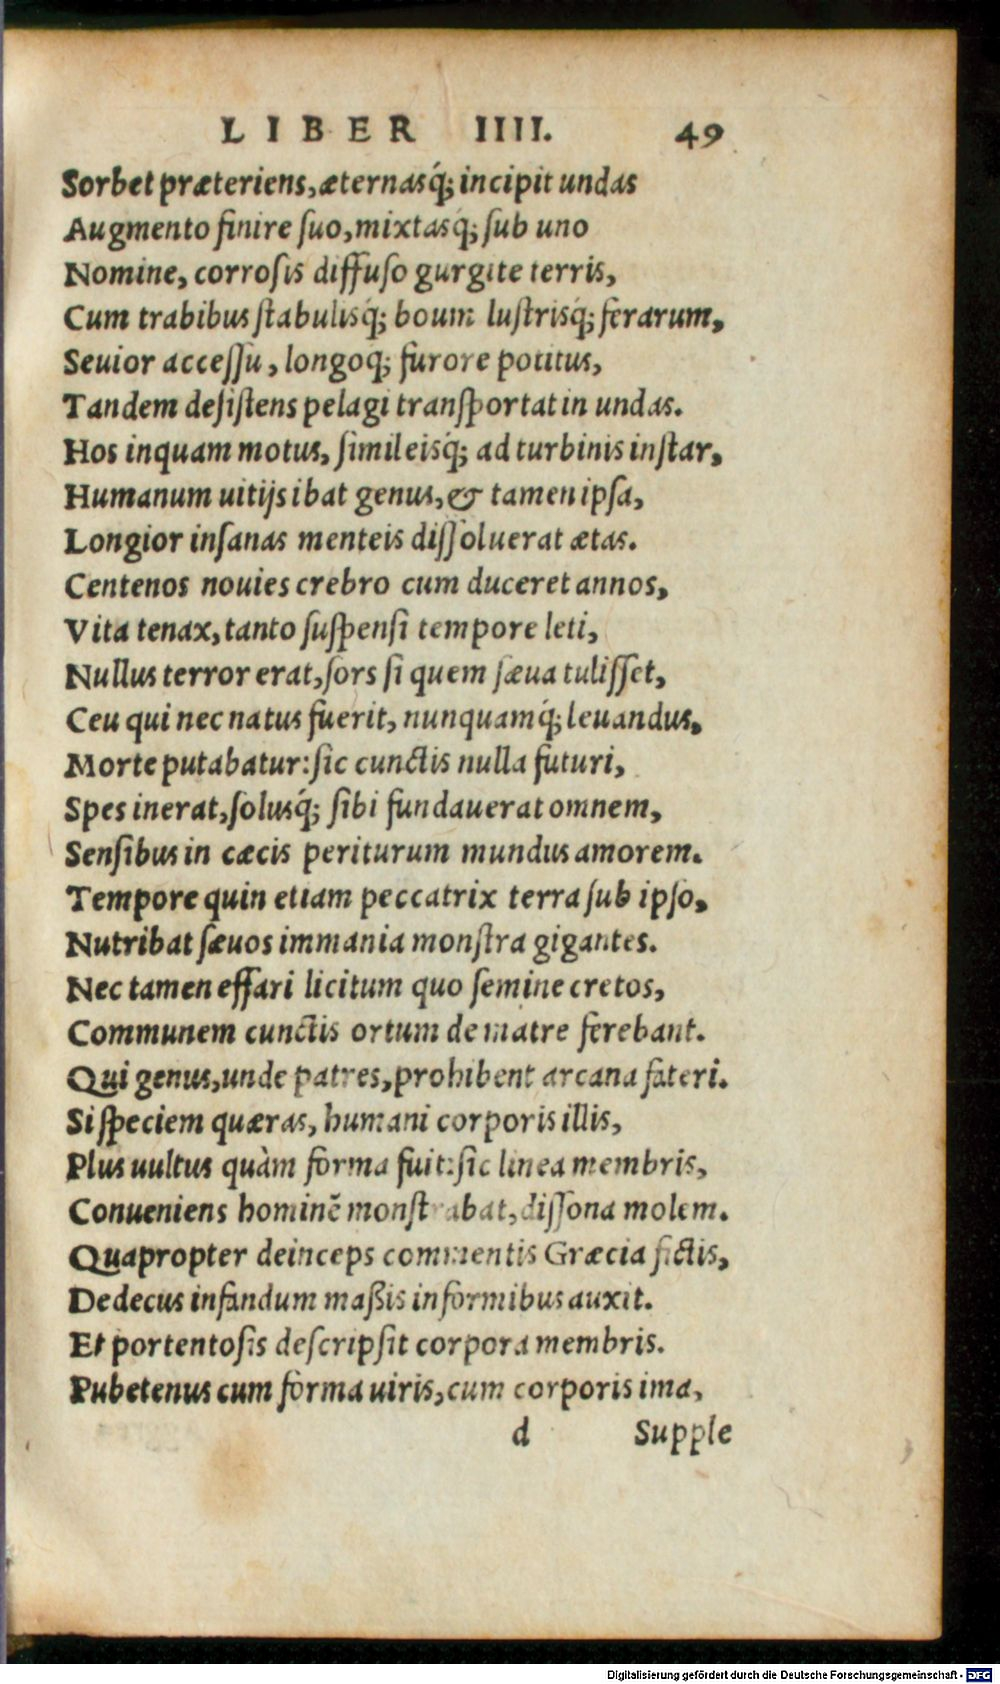 LIBER IIII. 49
Sorbet præteriens, æternasq́; incipit undas
Augmento finire suo, mixtasq́; sub uno
Nomine, corrosis diffuso gurgite terris,
Cum trabibus stabulisq́; boum lustrisq́; ferarum,
Seuior accessu, longoq́; furore potitus,
Tandem desistens pelagi transportat in undas.
Hos inquam motus, simileisq́; ad turbinis instar,
Humanum uitijs ibat genus, & tamen ipsa,
Longior insanas menteis dissoluerat ætas.
Centenos nouies crebro cum duceret annos,
Vita tenax, tanto suspensi tempore leti,
Nullus terror erat, sors si quem sæua tulisset,
Ceu qui nec natus fuerit, nunquamq́; leuandus,
Morte putabatur: sic cunctis nulla futuri,
Spes inerat, solusq́; sibi fundauerat omnem,
Sensibus in cæcis periturum mundus amorem.
Tempore quin etiam peccatrix terra sub ipso,
Nutribat sæuos immania monstra gigantes.
Nec tamen effari licitum quo semine cretos,
Communem cunctis ortum de matre ferebant.
Qui genus, unde patres, prohibent arcana fateri.
Si speciem quæras, humani corporis illis,
Plus uultus quàm forma fuit: sic linea membris,
Conueniens hominẽ monstrabat, dissona molem.
Quapropter deinceps commentis Græcia fictis,
Dedecus infandum maßis informibus auxit.
Et portentosis descripsit corpora membris.
Pubetenus cum forma uiris, cum corporis ima,
d Supple
Digitalisierung gefördert durch die Deutsche Forschungsgemeinschaft - DFG